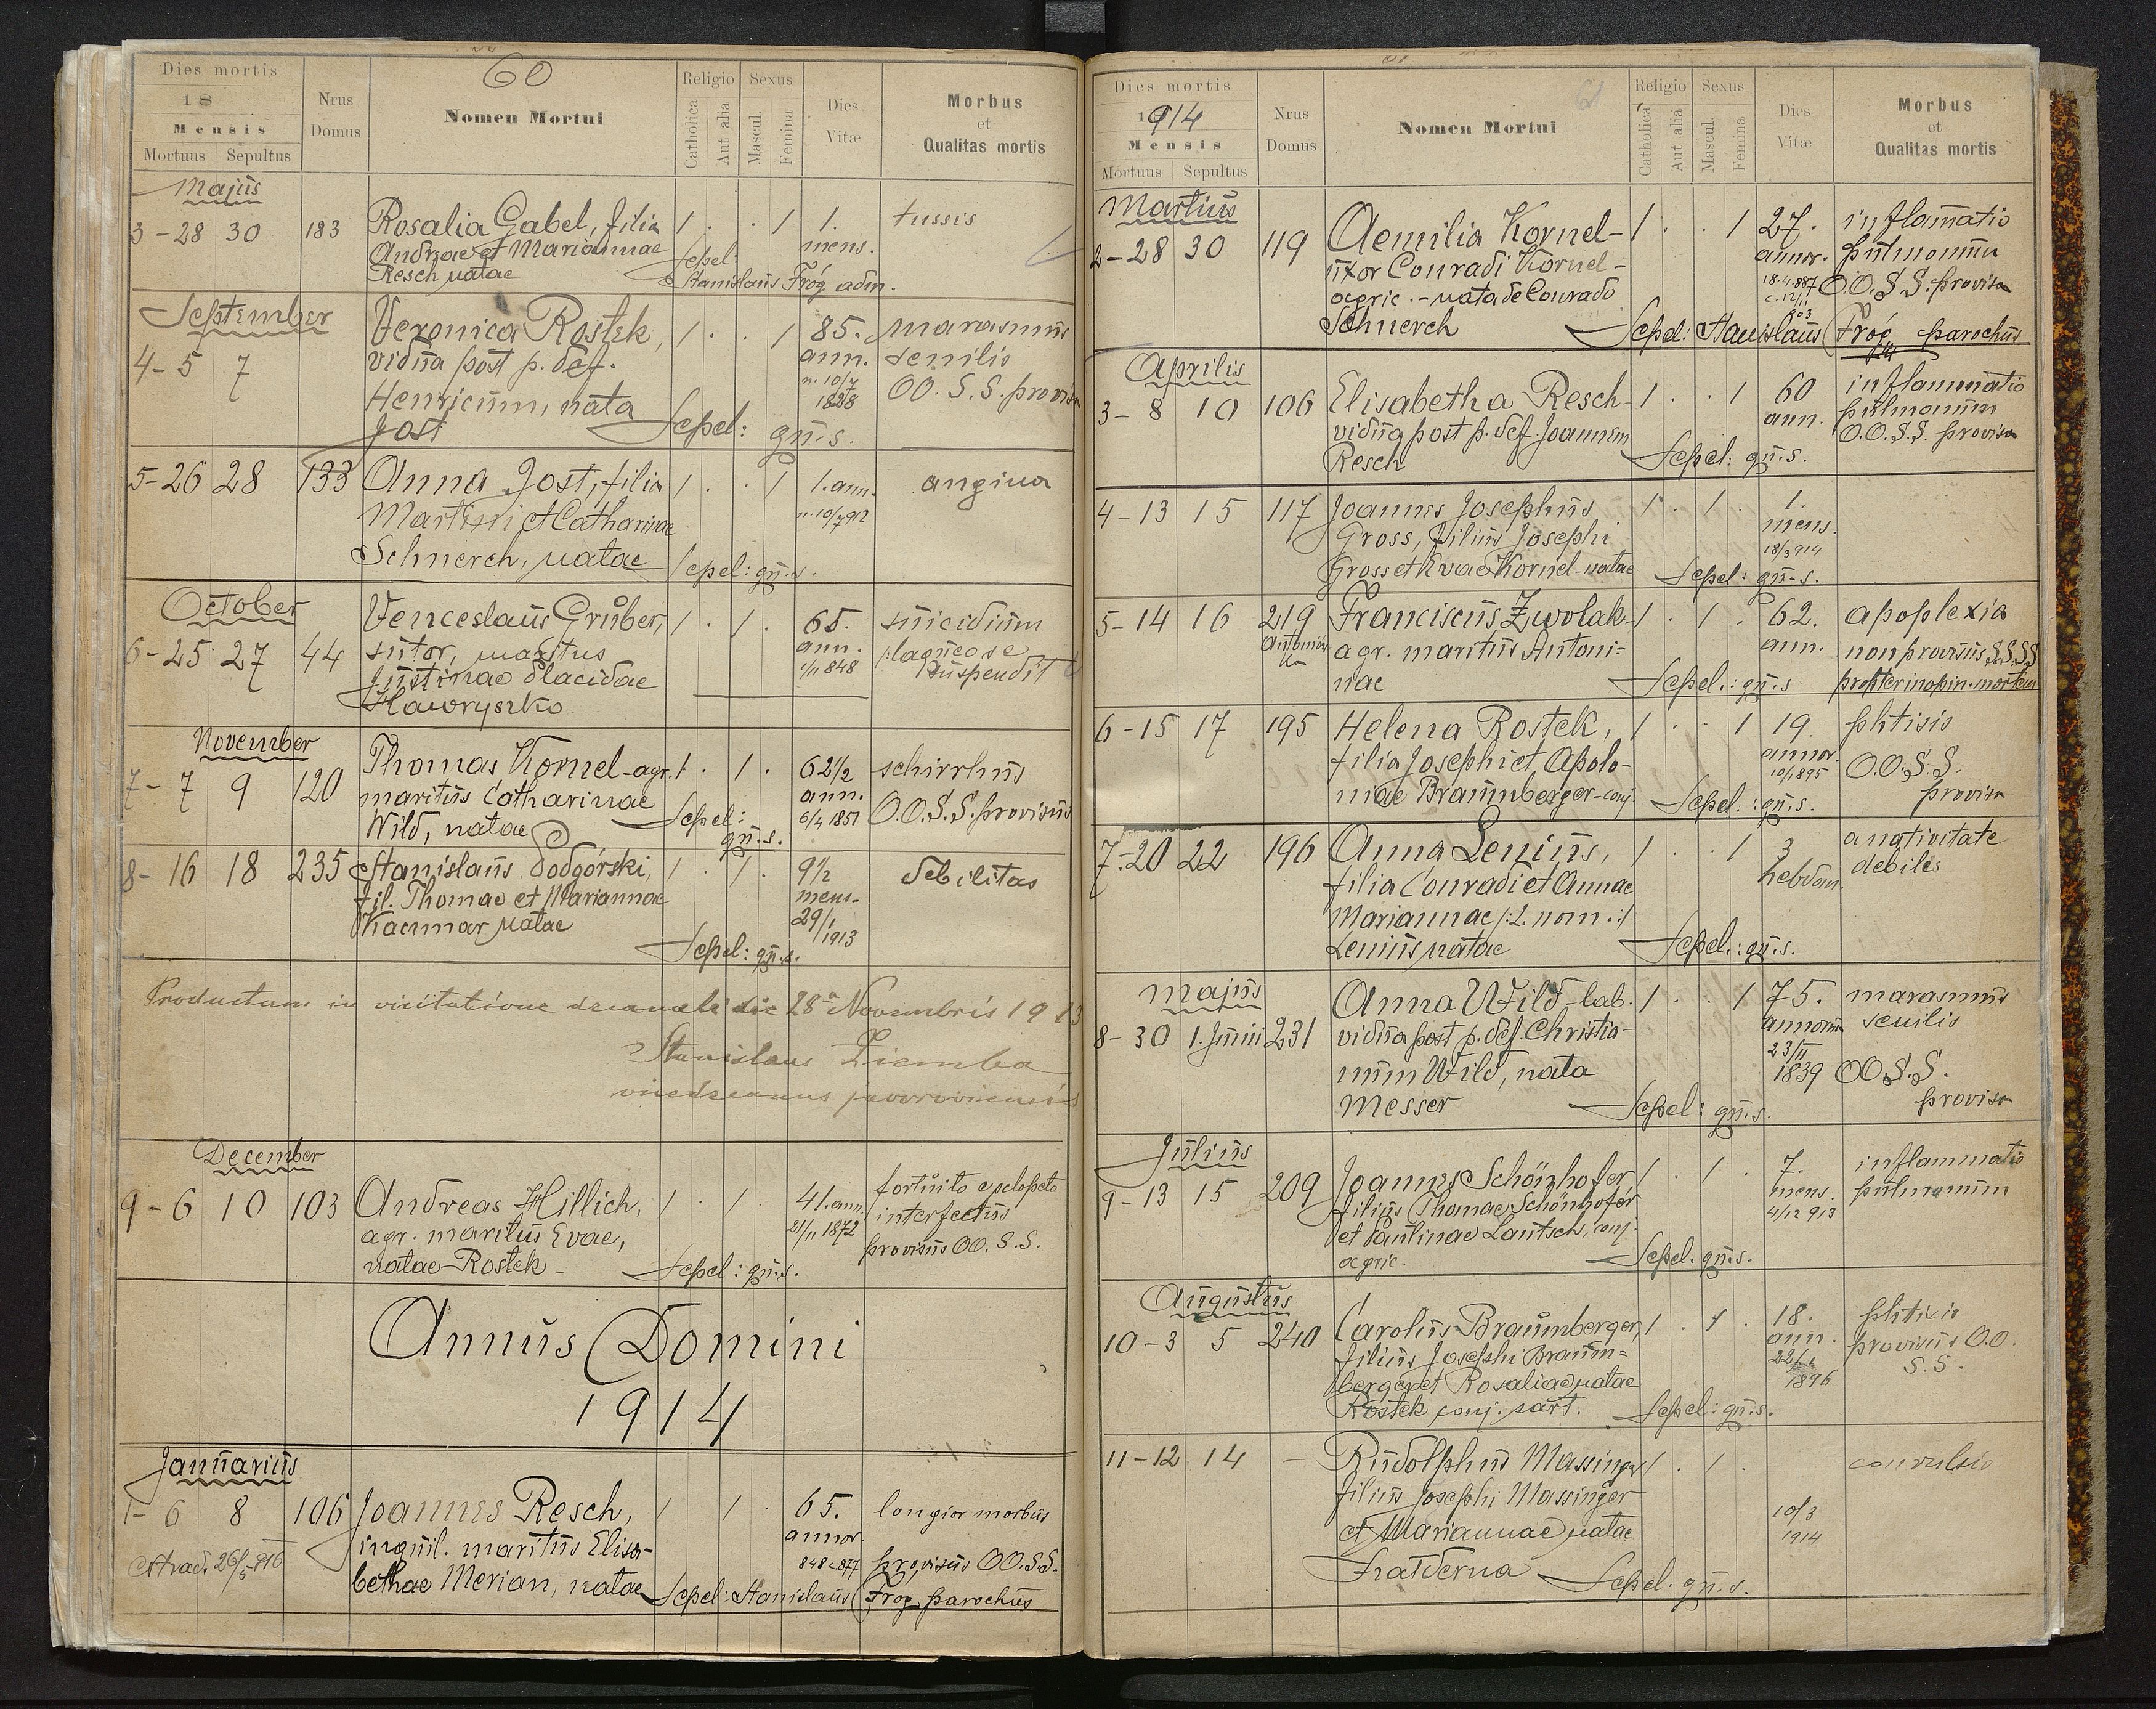 60
Dies mortis
18
Mensis
Mortuus Sepultus
Nrus Domus
Nomen Mortui
Religio
Catholica
Aut alia
Sexus
Mascul.
Femina
Dies Vitæ
Morbus
et
Qualitas mortis
Majus
3 - 28 30 183 Rosalia Gabel, filia 1 . . 1 1. tussis
Andreae et Mariannae mens.
Resch natae Sepel: Stanislaus Fróg adm.
September
4 - 5 7 Veronica Rostek, 1 . . 1 85. marasmus
vidua post p. def. ann. senilis
Henricum, nata n. 10/7 1828 OO. S. S. provisa
Jost Sepel: qu. s.
5 - 26 28 133 Anna Jost, filia 1 . . 1 1. ann. angina
Martini et Catharinae n. 10/7 912
Schnerch, natae Sepel: qu. s.
October
6 - 25 27 44 Venceslaus Gruber, 1 . 1 . 65. suicidium
sutor, maritus ann. /:laqueo se
Justinae Placidae 1/11 848 suspendit
Hawryszko
November
7 - 7 9 120 Thomas Kornel - agr. 1 . 1 . 62 1/2 schirrhus
maritus Catharinae ann. O.O. S. S. provisus
Wild, natae 6/4 1851
Sepel: qu. s.
8 - 16 18 235 Stanislaus Podgórski, 1 . 1 . 9 1/2 debilitas
fil. Thomae et Mariannae mens.
Kaczmar natae 29/1 1913
Sepel: qu. s.
Productum in visitatione decanali die 28a Novembris 1913
Stanislaus Ziemba
vicedecanus javoroviensis
December
9 - 6 10 103 Andreas Hillich, 1 . 1 . 41. ann. fortuito e sclopeto
agr. maritus Evae, 21/11 1872 interfectus
natae Rostek - Sepel: qu. s. provisus OO. S. S.
Annus Domini
1914
Januarius
1 - 6 8 106 Joannes Resch, 1 1 . 65. longior morbus
extrad. 26/5 916 inquil. maritus Elisa- annor.
bethae Merian, natae 848 c. 877 provisus OO. S S.
Sepel: Stanislaus Fróg, parochus
61
Dies mortis
1914
Mensis
Mortuus Sepultus
Nrus Domus
Nomen Mortui
Religio
Catholica
Aut alia
Sexus
Mascul.
Femina
Dies Vitæ
Morbus
et
Qualitas mortis
Martius
2 - 28 30 119 Aemilia Kornel - 1 . . 1 27. inflamatio
uxor Conradi Kornel - annor. pulmonum
agric. - nata de Conrado 18.4.887 O.O. S S. provisa
Schnerch Sepel: Stanislaus Fróg parochus
Aprilis
3 - 8 10 106 Elisabetha Resch - 1 . . 1 60 inflammatio
vidua post p. def. Joannem ann. pulmonum
Resch O.O. S.S. provisa
Sepel: qu. s.
4 - 13 15 117 Joannes Josephus 1 . 1 . 1.
Gross, filius Josephi mens.
Gross et Evae Kornel - natae 18/3 914
Sepel: qu. s.
5 - 14 16 219 Franciscus Zwolak - 1 . 1 . 62. apoplexia
agr. maritus Antoni= ann. non provisus S.S.S.S
nae Sepel.: qu. s propter inopin. mortem
6 - 15 17 195 Helena Rostek, 1 . . 1 19. phtisis
filia Josephi et Apolo- annor. O.O. S. S.
niae Braumberger - conj. 10/1 895 provisa
Sepel.: qu. s.
7. - 20 22 196 Anna Lenius, 1 . . 1 3 a nativitate
filia Conradi et Annae hebdom. debilis
Mariannae /:2. nom.:/
Lenius natae Sepel.: qu. s.
Majus
8 - 30 1. Junii 231 Anna Wild - lab. 1 . . 1 75. marasmus
vidua post p. def. Christia- annorum senilis
num Wild, nata 23/11 1839 OO. S. S.
Messer Sepel: qu. s. provisa
Julius
9 - 13 15 209 Joannes Schönhofer 1 . 1 . 7. inflammatio
filius Thomae Schönhofer mens. pulmonum
et Paulinae Lautsch, conj. 4/12 913
agric. Sepel. qu. s.
Augustus
10 - 3 5 240 Carolus Braumberger, 1 . 1 . 18. phtisis
filius Josephi Braum= ann. provisus O.O.
berger et Rosaliae natae 22/1 1896 S. S.
Rostek conj. sart. Sepel: qu. s.
11 - 12 14 - Rudolphus Massinger 1 . 1 . convulsio
filius Josephi Massinger 10/3
et Mariannae natae 1914
Sepel. qu. s.